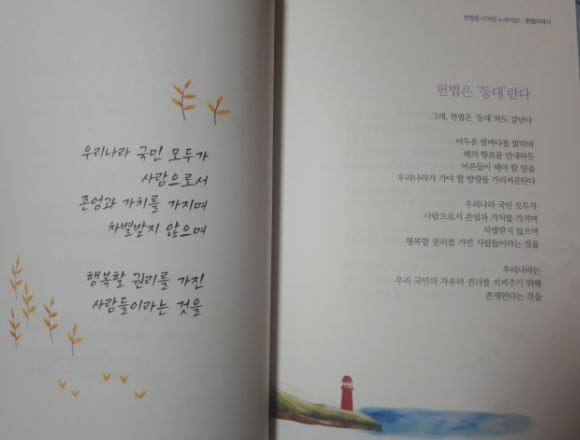 우리나라 국민 모두가
사람으로서
존엄과 가치를 가지며
차별받지 않으며
행복할 권리를 가진
사람들이라는 것을
헌법을 시처럼 노래처럼! : 헌법이야기
헌법은 ‘등대’란다
그래, 헌법은 ‘등대’와도 같단다
어두운 밤바다를 밝히며
배의 항로를 안내하듯
어른들이 해야 할 일을
우리나라가 가야 할 방향을 가리켜준단다
우리나라 국민 모두가
사람으로서 존엄과 가치를 가지며
차별받지 않으며
행복할 권리를 가진 사람들이라는 것을
우리나라는
우리 국민의 자유와 권리를 지켜주기 위해
존재한다는 것을